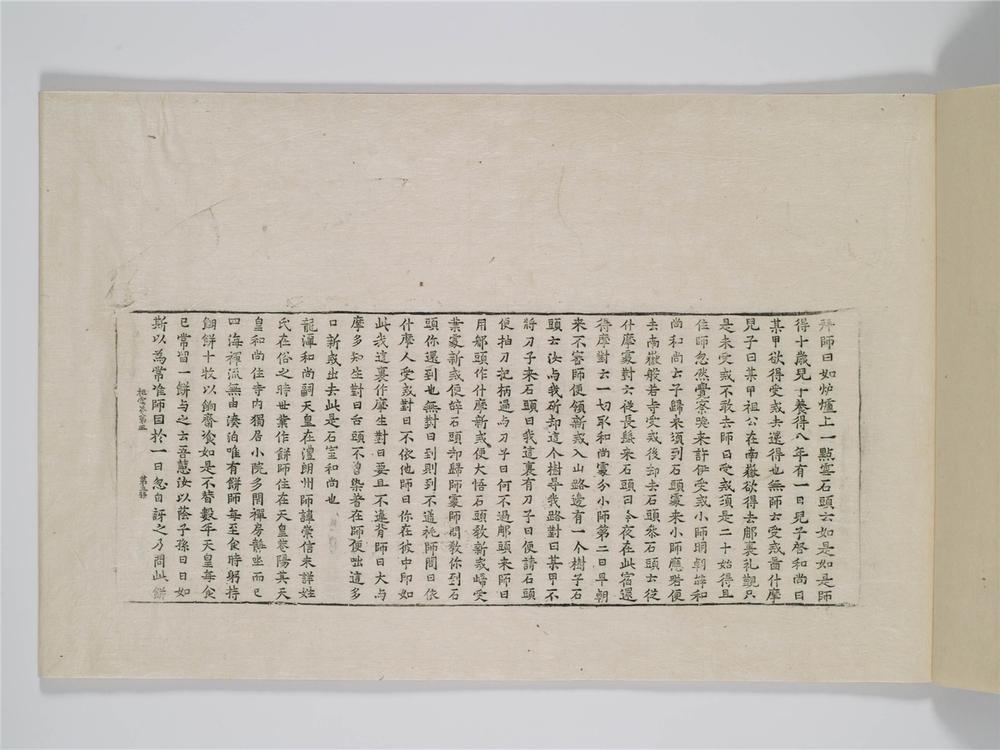 拜師曰如炉爐上一點雪石頭云如是如是師
得十歲兒子養得八年有一日兒子啓和尚曰
某甲欲得受戒去還得也無師云受戒啚什摩
兒子曰某甲祖公在南嶽欲得去郍裏礼覲只
是未受戒不敢去師曰受戒須是二十始得且
住師忽然覺察喚來許伊受戒小師明朝辝和
尚和尚云子歸來須到石頭處來小師應喏便
去南嶽般若寺受戒後却去石頭叅石頭云從
什摩處對云從長髭來石頭曰今夜在此宿還
得摩對云一切取和尚處分小師第二日早朝
來不審師便領新戒入山路邊有一个樹子石
頭云汝与我斫却這个樹㝵我路對曰某甲不
將刀子来石頭曰我這裏有刀子曰便請石頭
便抽刀把柄過与刀子曰何不過郍頭来師曰
用郍頭作什摩新戒便大悟石頭教新戒歸受
業處新戒便辝石頭却歸師處師問教你到石
頭你還到也無對曰到則到不通耗師問曰依
什摩人受戒對曰不依他師曰你在彼中即如
此我這裏作摩生對曰要且不違背師曰大与
摩多知生對曰舌頭不曾染著在師便咄這多
口新戒出去此是石室和尚也
龍潭和尚嗣天皇在澧朗州師諱崇信未詳姓
氏在俗之時世業作餅師住在天皇巷陽其天
皇和尚住寺内獨居小院多閇禪房靜坐而已
四海禪流無由湊泊唯有餅師每至食時躬持
餬餅十枚以餉齋飡如是不替數年天皇每食
已常留一餅与之云吾慧汝以蔭子孫日日如
斯以為常准師因於一日忽自訝之乃問此餅
祖堂集第五